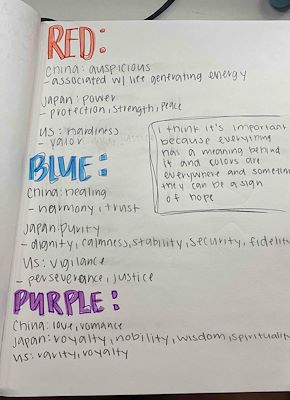 RED:
China: auspicious
-associated w/ life gentrating energy
Japan: power
- protection, strength, peace
US: hardiness
- valor
i think it's important
because everything
has a meaning behind
it and colors are
everywhere and sometim
they can be a sign
of hope
BLUE:
China: healing
- harmony, trust
Japan: purity
-dignity, calmness, stability, security, fidelity
US: vigilance
- perseverance, justice
PURPLE:
China: love, romance
Japan: royalty, nobility, wisdom, spirituality
US: rarity, royalty